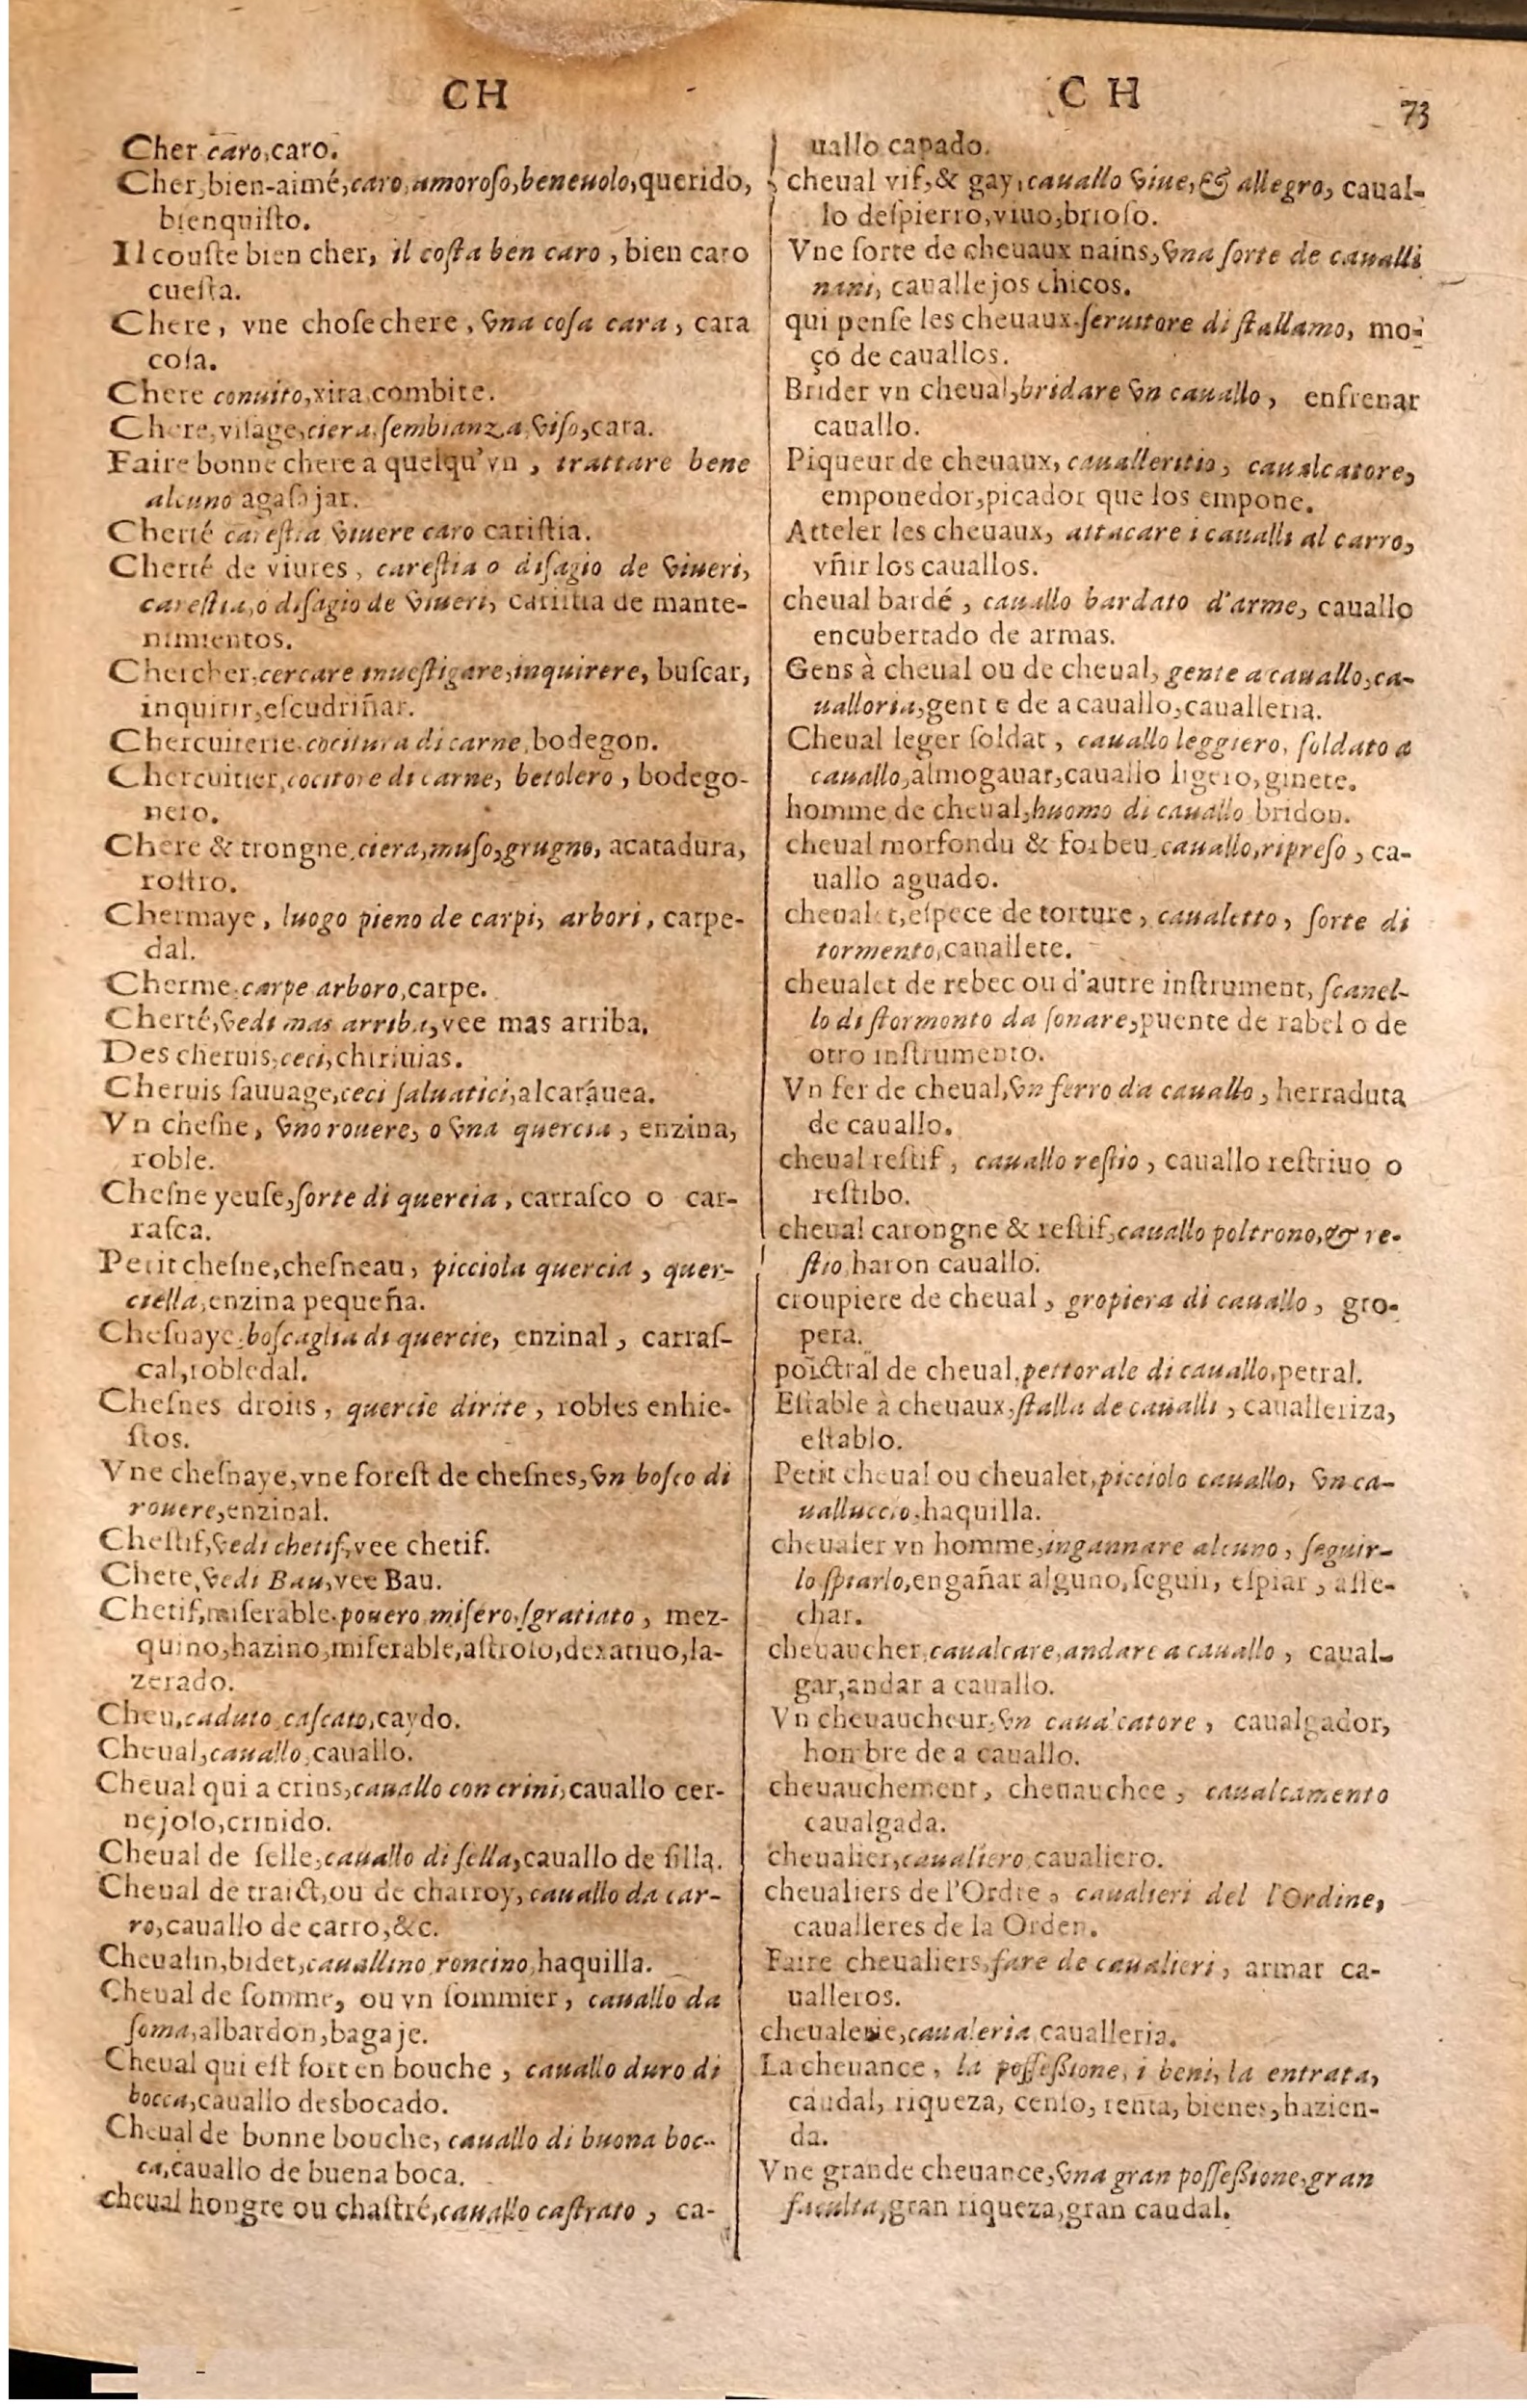 CH
Cher caro, caro.
Cher, bien-aimé, caro, amoroſo, beneuolo, querido,
bienquiſto.
Il couſte bien cher, il coſta ben caro, bien caro
cueſta.
Chere, vne choſe chere, vna coſa cara, cara
coſa.
Chere conuito, xira combite.
Chere, viſage, ciera, ſembianza viſo, cara.
Faire bonne chere a quelqu'vn, trattare bene
alcuno agaſajar.
Cherté careſtia viuere caro cariſtia.
Cherté de viures, careſtia o diſagio de viueri,
careſtia, o diſagio de viueri, cariſtia de mante-
nimientos.
Chercher, cercare inueſtigare, inquirere, buſcar,
inquirir, eſcudriñar.
Chercuiterie, cocitura di carne, bodegon.
Chercuitier, cocitore di carne, betolero, bodego-
nero.
Chere & trongne, ciera, muſo, grugno, acatadura,
roſtro.
Chermaye, luogo pieno de carpi, arbori, carpe-
dal.
Cherme, carpe arboro, carpe.
Cherté, vedi mas arriba, vee mas arriba.
Des cheruis, ceci, chiriuias.
Cheruis ſauuage, ceci ſaluatici, alcarauea.
Vn cheſne, vno rouere, o vna quercia, enzina,
roble.
Cheſne yeuſe, ſorte di quercia, carraſco o car-
raſca.
Petit cheſne, cheſneau, picciola quercia, quer-
ciella, enzina pequeña.
Cheſnaye, boſcaglia di quercie, enzinal, carraſ-
cal, robledal.
Cheſnes droits, quercie dirite, robles enhie-
ſtos.
Vne cheſnaye, vne foreſt de cheſnes, vn boſco di
rouere, enzinal.
Cheſtif, vedi chetif, vee chetif.
Chete, vedi Bau, vee Bau.
Chetif, miſerable, pouero miſero, ſgratiato, mez-
quino, hazino, miſerable, aſtroſo, dexatiuo, la-
zerado.
Cheu, caduto caſcato, caydo.
Cheual, cauallo, cauallo.
Cheual qui a crins, cauallo con crini, cauallo cer-
nejoſo, crinido.
Cheual de ſelle, cauallo di ſella, cauallo de ſilla.
Cheual de traict, ou de charroy, cauallo da car-
ro, cauallo de carro, &c.
Cheualin, bidet, cauallino roncino, haquilla.
Cheual de ſomme, ou vn ſommier, cauallo da
ſoma, albardon, bagaje.
Cheual qui eſt fort en bouche, cauallo duro di
bocca, cauallo desbocado.
Cheual de bonne bouche, cauallo di buona boc-
ca, cauallo de buena boca.
cheual hongre ou chaſtré, cauallo caſtrato, ca-
CH
73
uallo capado.
cheual vif, & gay, cauallo viue, & allegro, caual-
lo deſpierro, viuo, brioſo.
Vne ſorte de cheuaux nains, vna ſorte de caualli
nani, cauallejos chicos.
qui penſe les cheuaux, ſeruitore di ſtallamo, mo-
ço de cauallos.
Brider vn cheual, bridare vn cauallo, enfrenar
cauallo.
Piqueur de cheuaux, caualleritio, caualcatore,
emponedor, picador que los empone.
Atteler les cheuaux, attacare i caualli al carro,
vñir los cauallos.
cheual bardé, cauallo bardato d'arme, cauallo
encubertado de armas.
Gens à cheual ou de cheual, gente a cauallo, ca-
ualloria, gent e de a cauallo, caualleria.
Cheual leger ſoldat, cauallo leggiero, ſoldato a
cauallo, almogauar, cauallo ligero, ginete.
homme de cheual, huomo di cauallo bridon.
cheual morfondu & forbeu, cauallo, ripreſo, ca-
uallo aguado.
cheualet, eſpece de torture, caualetto, ſorte di
tormento, cauallete.
cheualet de rebec ou d'autre inſtrument, ſcanel-
lo di ſtormonto da ſonare, puente de rabel o de
otro inſtrumento.
Vn fer de cheual, vn ferro da cauallo, herradura
de cauallo.
cheual reſtif, cauallo reſtio, cauallo reſtriuo o
reſtibo.
cheual carongne & reſtif, cauallo poltrono, & re-
ſtio, haron cauallo.
croupiere de cheual, gropiera di cauallo, gro-
pera.
poictral de cheual, pettorale di cauallo, petral.
Eſtable à cheuaux, ſtalla de caualli, caualleriza,
eſtablo.
Petit cheual ou cheualet, picciolo cauallo, vn ca-
ualluccio, haquilla.
cheualer vn homme, ingannare alcuno, ſeguir-
lo ſpiarlo, engañar alguno, ſeguir, eſpiar, aſſe-
char.
cheuaucher, caualcare, andare a cauallo, caual-
gar, andar a cauallo.
Vn cheuaucheur, vn caualcatore, caualgador,
hombre de a cauallo.
cheuauchement, cheuauchee, caualcamento
caualgada.
cheualier, caualiero caualiero.
cheualiers de l'Ordre, caualieri del l'Ordine,
caualleres de la Orden.
Faire cheualiers, fare de caualieri, armar ca-
ualleros.
cheualerie, caualeria caualleria.
La cheuance, la poſſeßione, i beni, la entrata,
caudal, riqueza, cenſo, renta, bienes, hazien-
da.
Vne grande cheuance, vna gran poſſeßione, gran
faculta, gran riqueza, gran caudal.